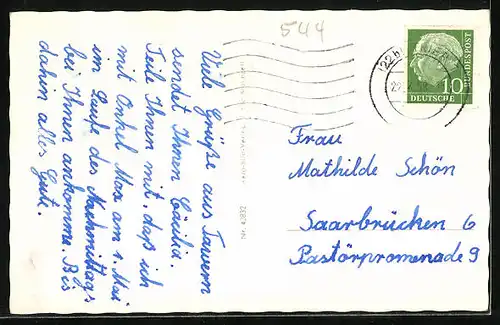 544
Viele Grüße aus Tawern
sendet Ihnen Cäcilia.
Teile Ihnen mit, daß ich
mit Onkel Max am 1. Mai
im Laufe des Nachmittags
bei Ihnen ankomme. Bis
dahin alles Gute.
(22b)
DEUTSCHE
BUNDESPOST
10
Frau
Mathilde Schön
Saarbrücken 6
Pastörpromenade 9